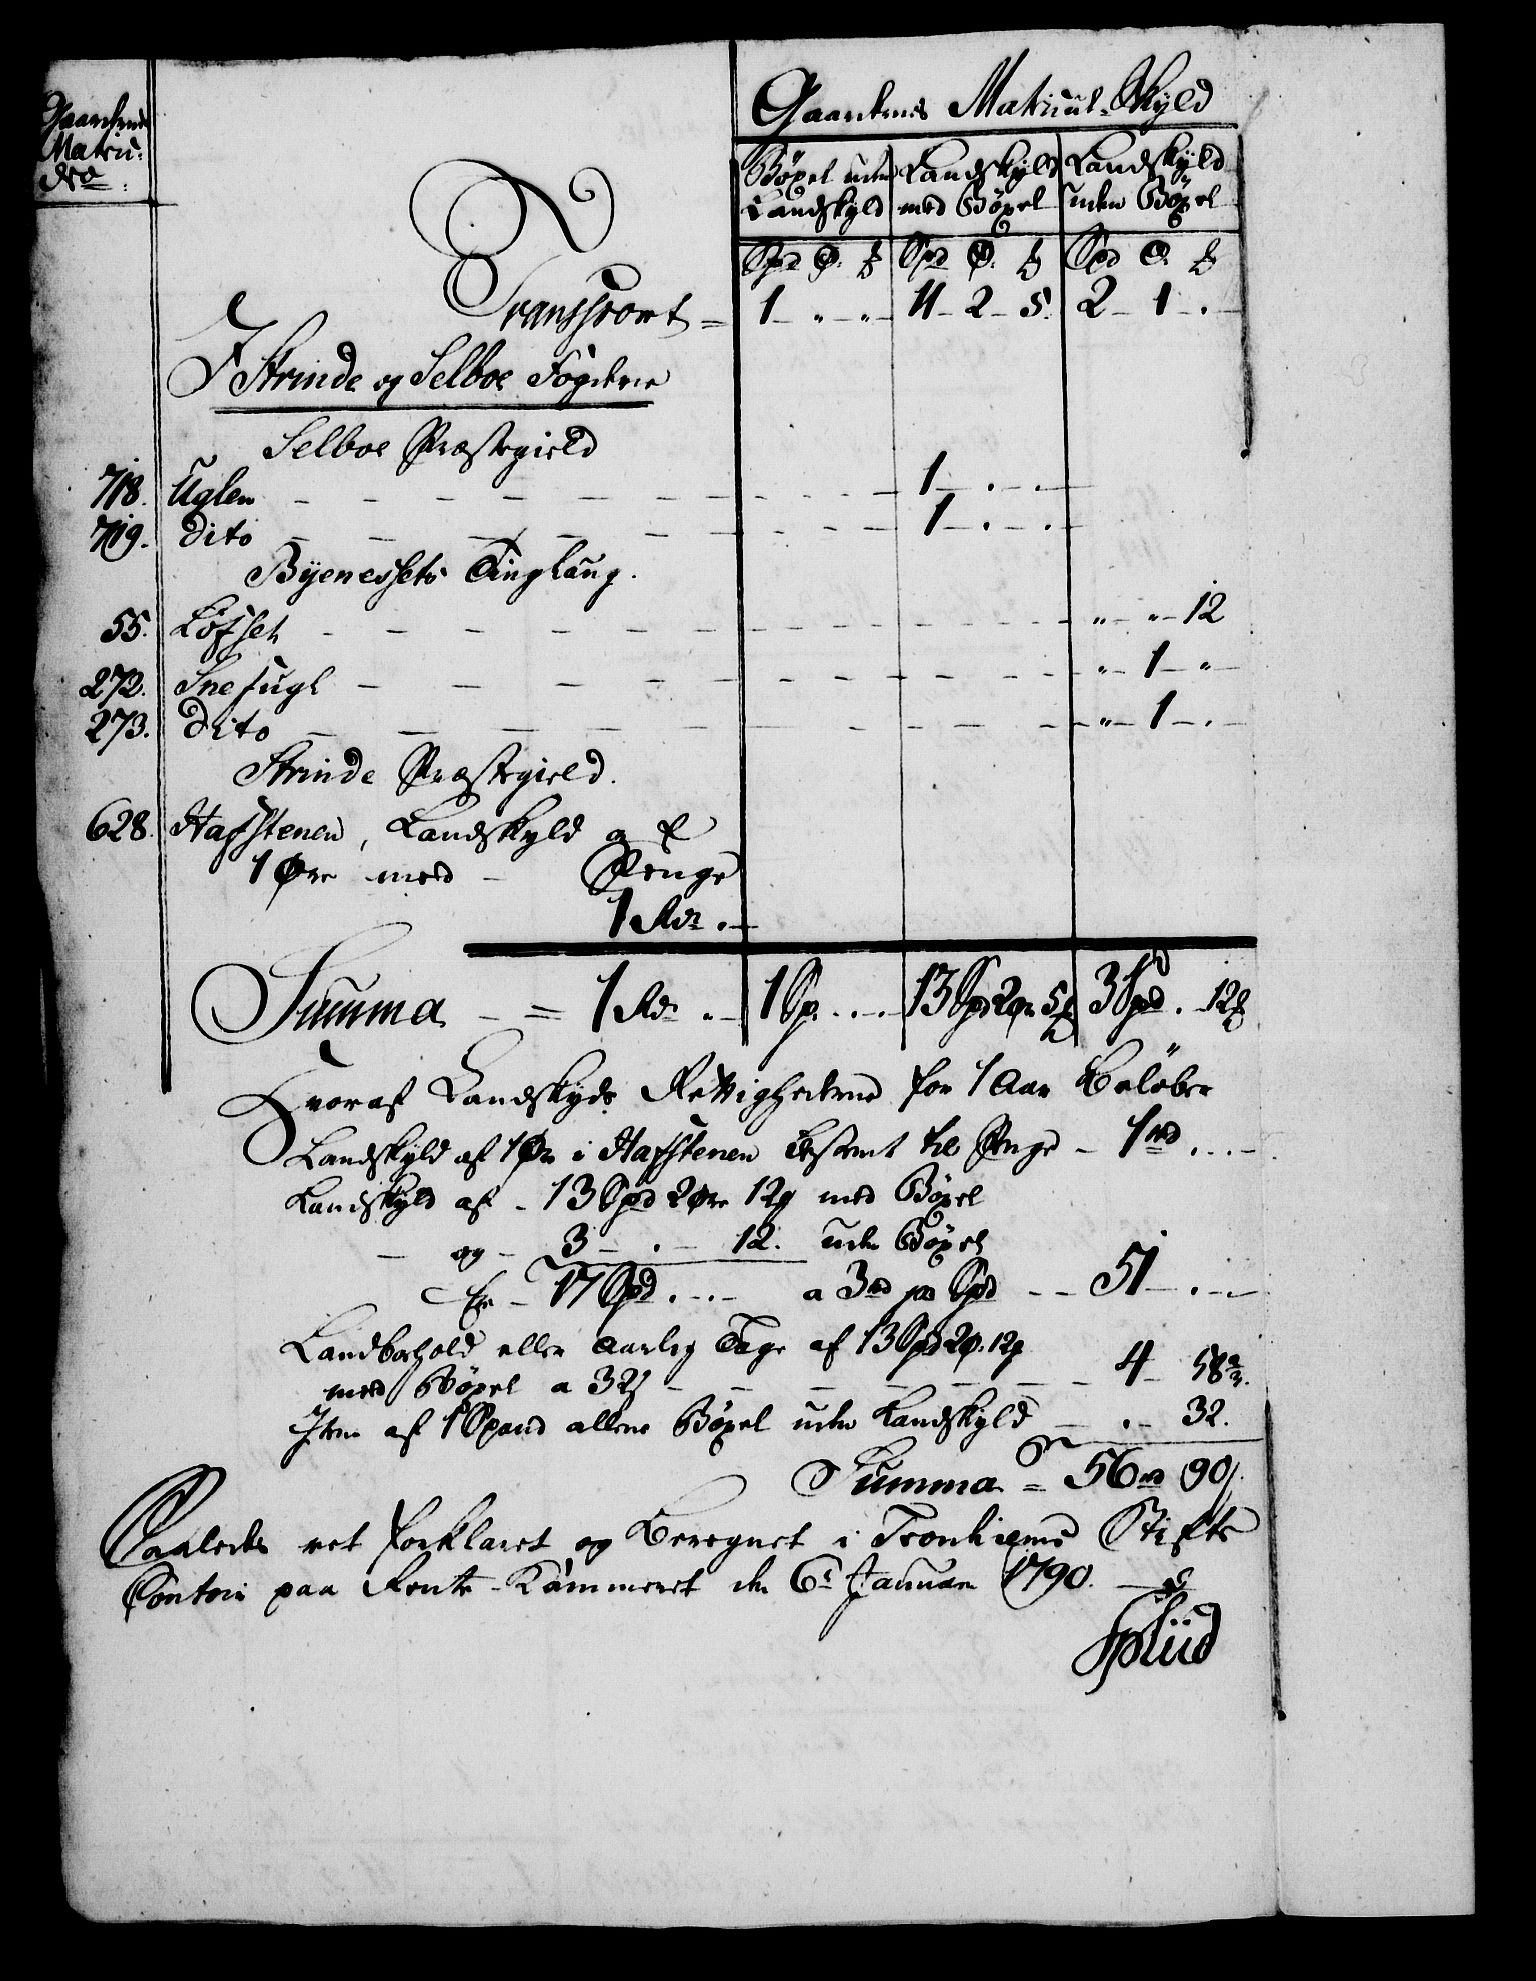 Gaardenes Matricul-Skyld
Gaardens
Matric:
Nro
Böxel uden Landskyld Landskyld
Landskyld med Böxel uden Böxel
Spd Ø. ꝥ Spd Ø. ꝥ Spd Ø. ꝥ
Transport = 1 " " 11 2 5. 2 1 .
I Strinde og Selboe Fogderie
Selboe Præstegield
718. Uglen 1 . .
719. dito 1 . .
Byenessets Tinglaug.
55. Løfset " " 12
272. Snefugl " 1 "
273. dito " 1 .
Strinde Præstegield.
628. Hafstenen, Landskyld af
1 Øre med - Penge
1 Rdr . -
Summa - = 1 Rdr . - 1 Sp. . . 13 Spd 2 Ør 5 3 Spd . 12
Hvoraf Landskylds Rettighederne for 1 Aar Beløber
Landskyld af 1 Ør i Hafstenen bestemt til Penge - 1 rd . . -
Landskyld af - 13 Spd 2 Øre 12 med Böxel
- og - 3 - . - 12. uden Böxel
Er - 17 Spd . . - a 3 rd pr Spd - - 51 - . -
Landbohold eller Aarlig Tage af 13 Spd 2 Ø. 12
med Böxel a 32 ß - - 4 - 58 2/3.
Item af 1 Spand allene Böxel uden Landskyld - . - 32.
Summa = 56 rd 90 ß.
Saaledes ret forklaret og Beregnet i Tronhiems Stifts
Contoir paa Rente-Kammeret den 6t Januar 1790.
Splud